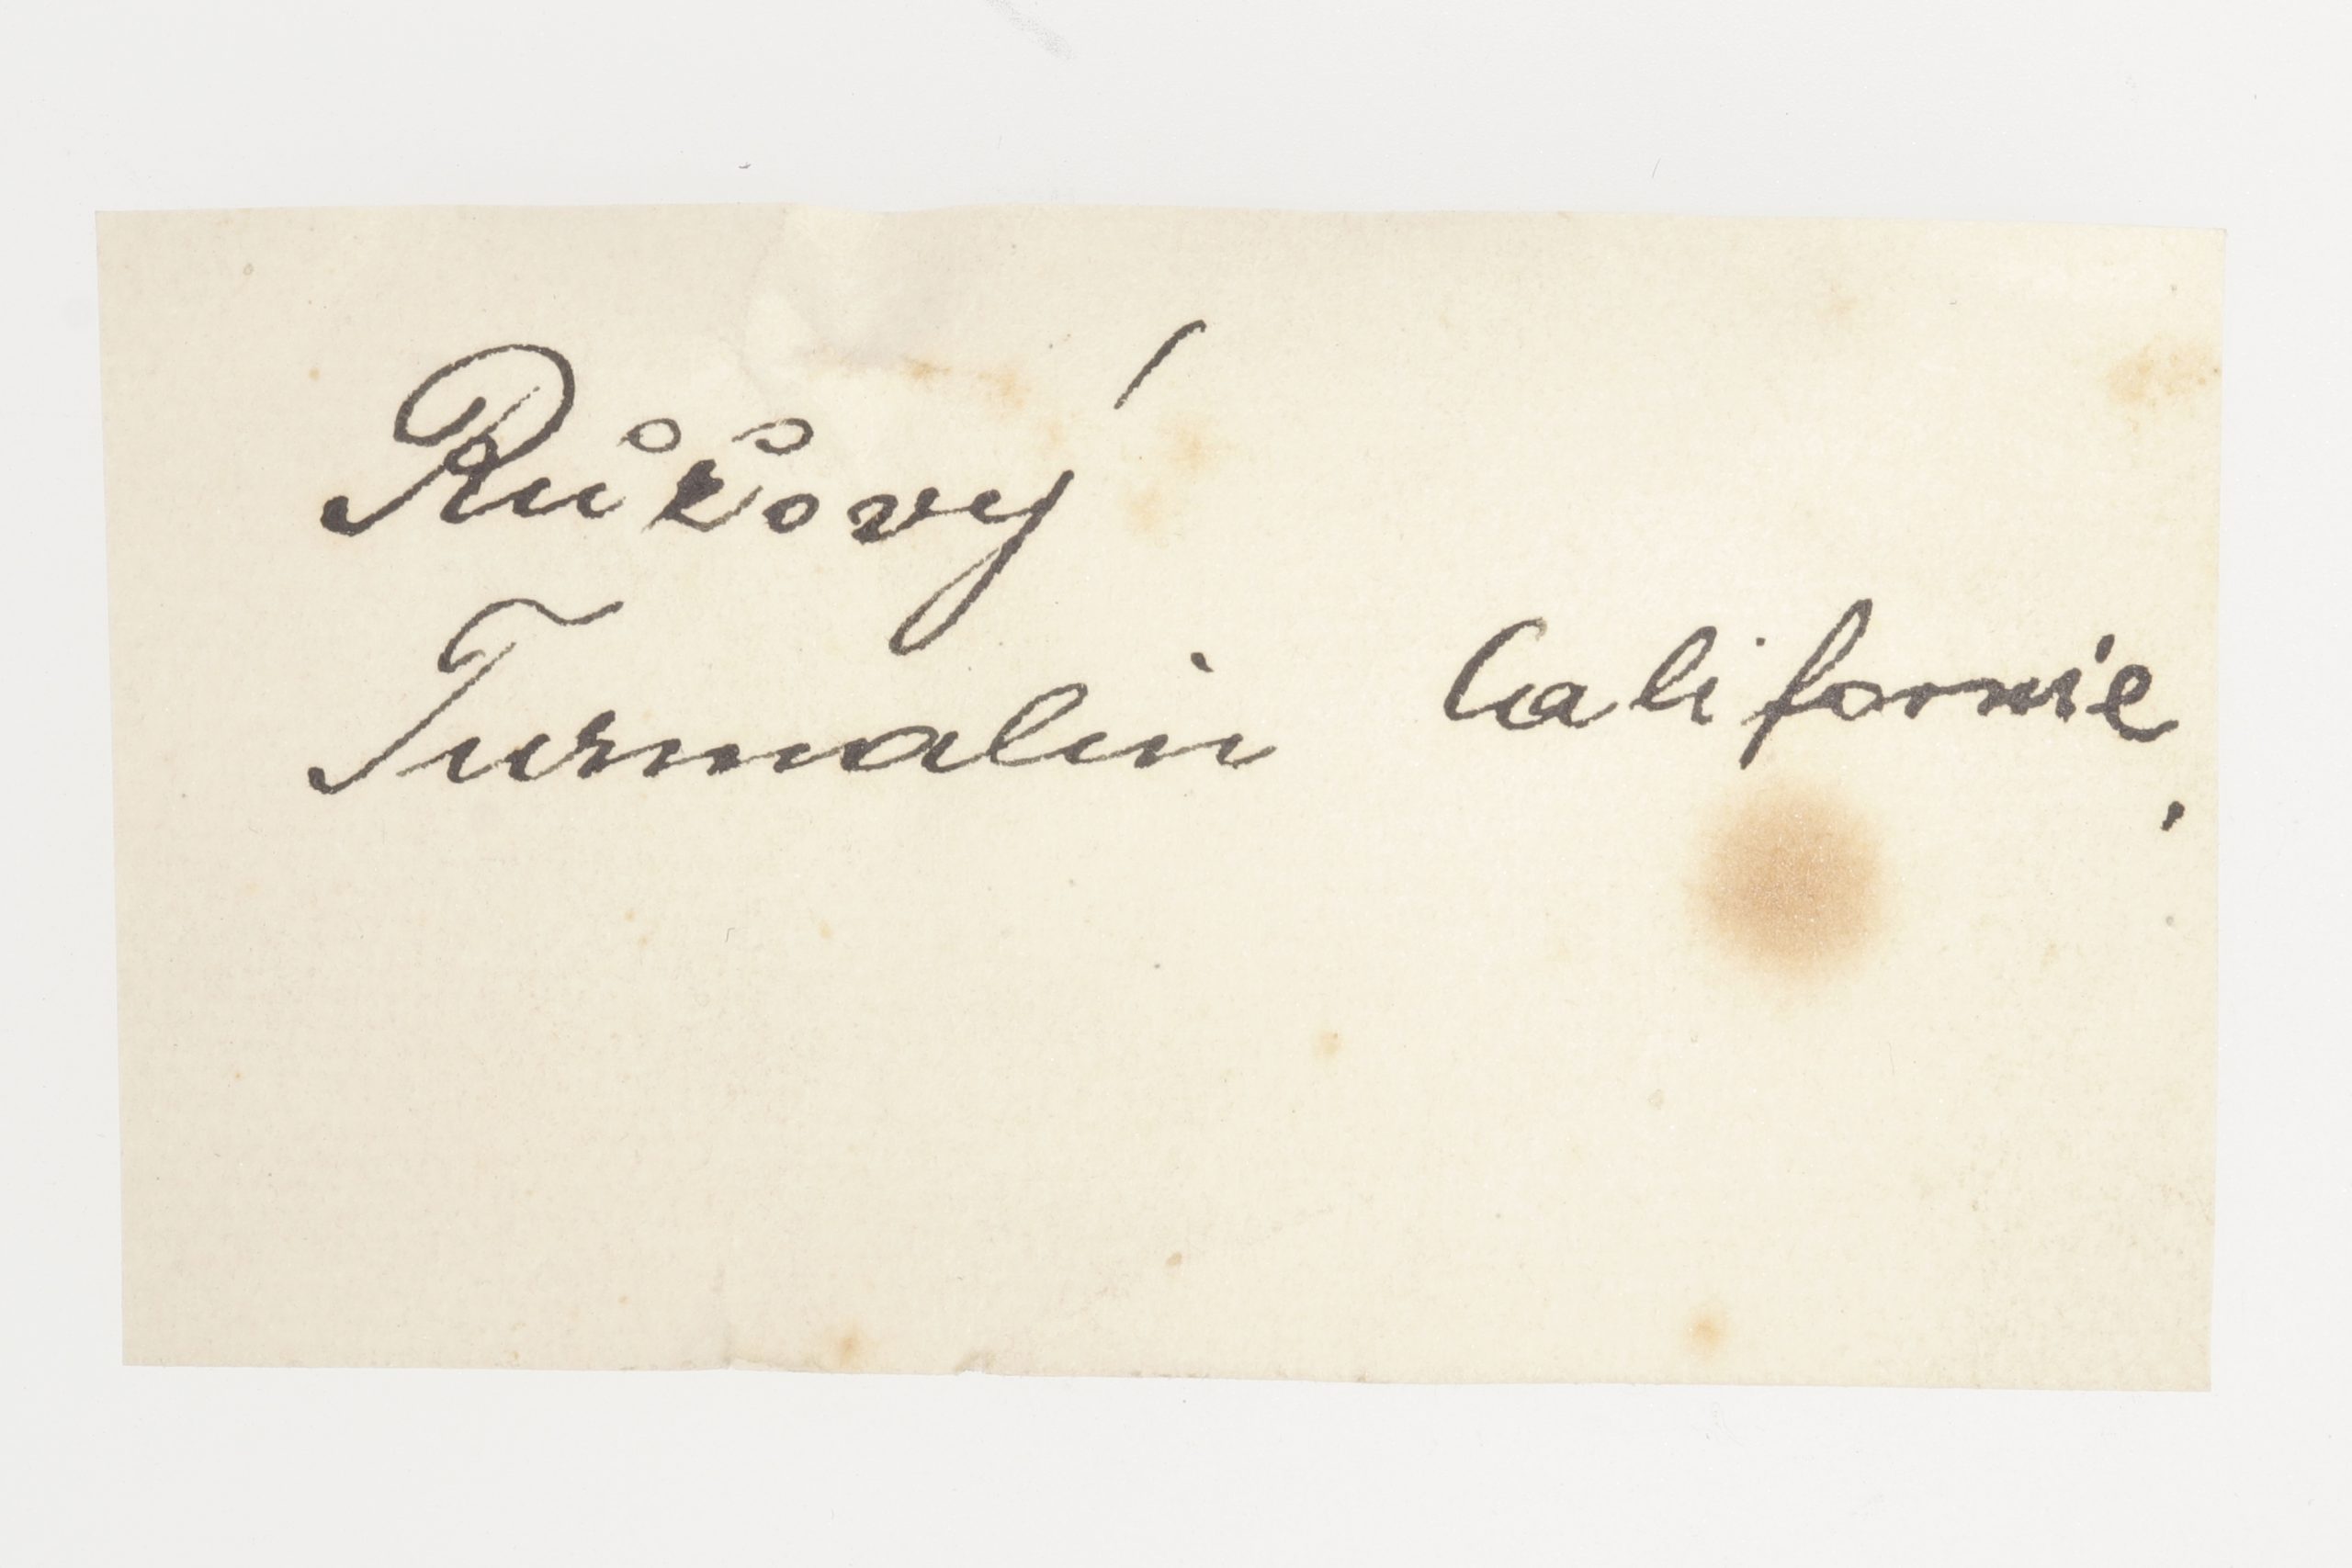 Růžový
Turmalin Californie,